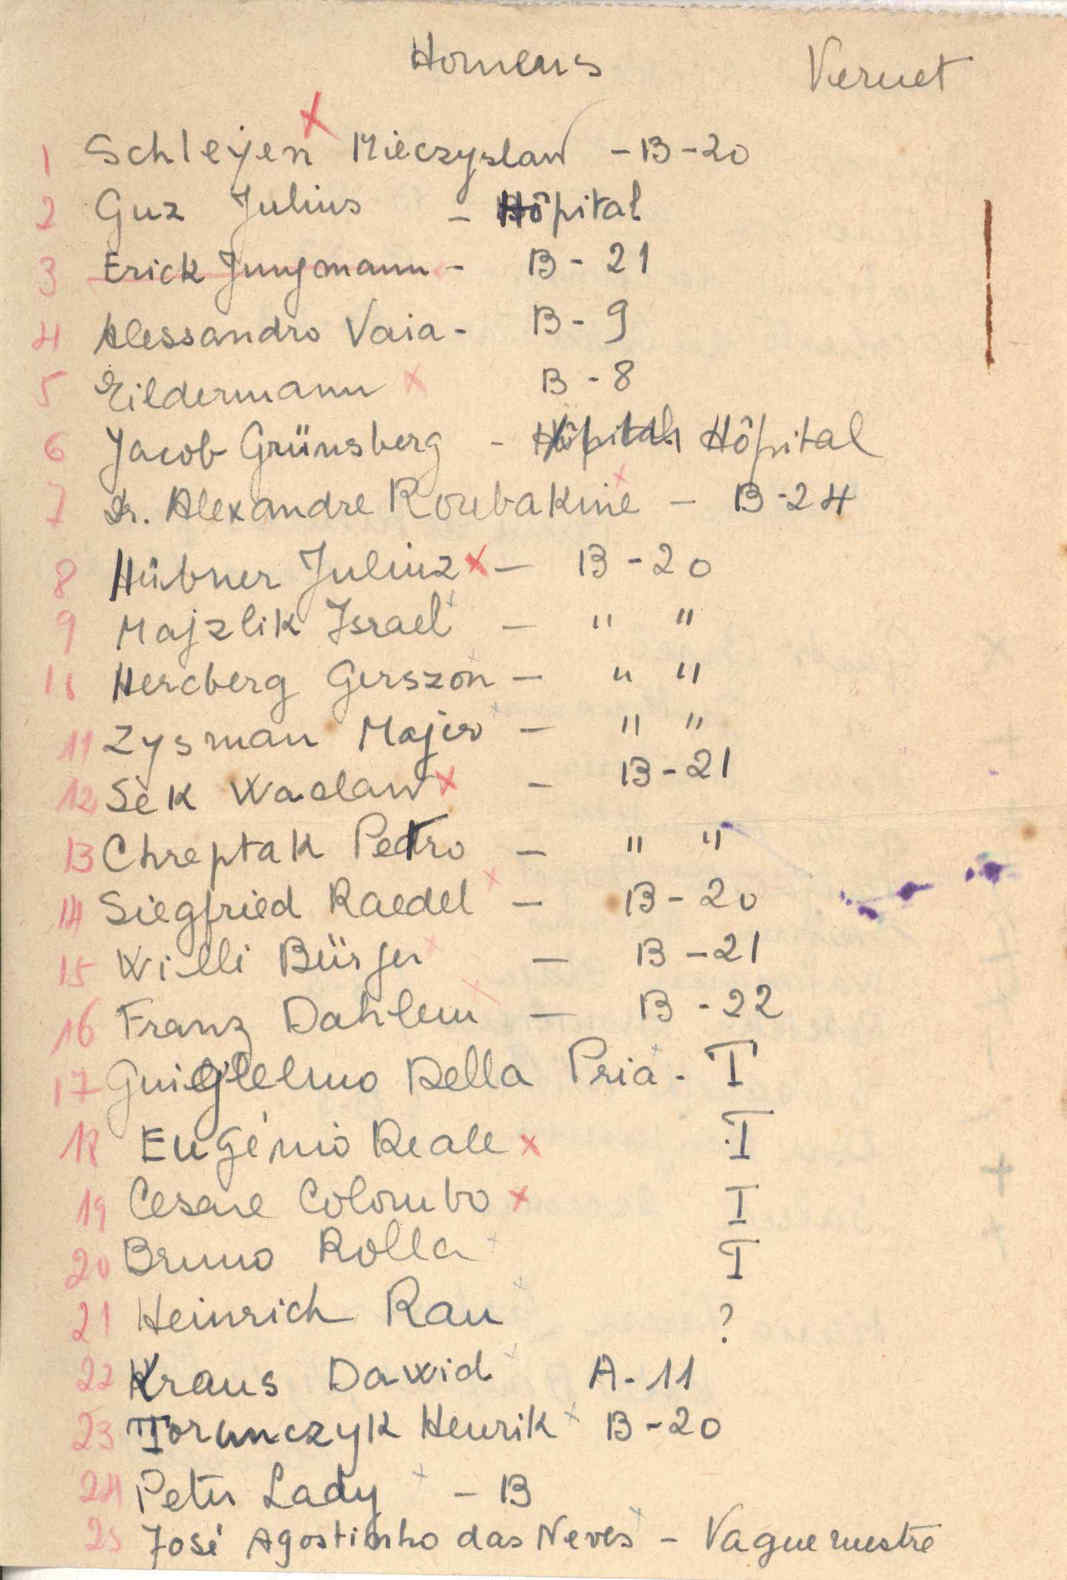 Homens Vernet
1 Schleyen Mieczyslaw - B-20
2 Guz Julius - Hôpital
3 Erick Jungmann - B - 21
4 Alessandro Vaia - B - 9
5 Zildermann x B - 8
6 Jacob Grünsberg - Hôpital Hôpital
7 Dr. Alexandre Roubakine - B-24
8 Hübner Juliuz x - B - 20
9 Majzlik Israel - " "
10 Hercberg Gerszon - " "
11 Zysman Majer - " "
12 Sek Waclaw x - B-21
13 Chreptak Petro - " "
14 Siegfried Raedel x - B-20
15 Willi Bürger x - B-21
16 Franz Dahlem x - B - 22
17 Guiglielmo Della Pria - I
18 Eugénio Reale x I
19 Cesare Colombo x I
20 Bruno Rolla I
21 Heinrich Rau ?
22 Kraus Dawid A-11
23 Torunczyk Henrik B-20
24 Peter Lady - B
25 José Agostinho das Neves - Vaguemestre